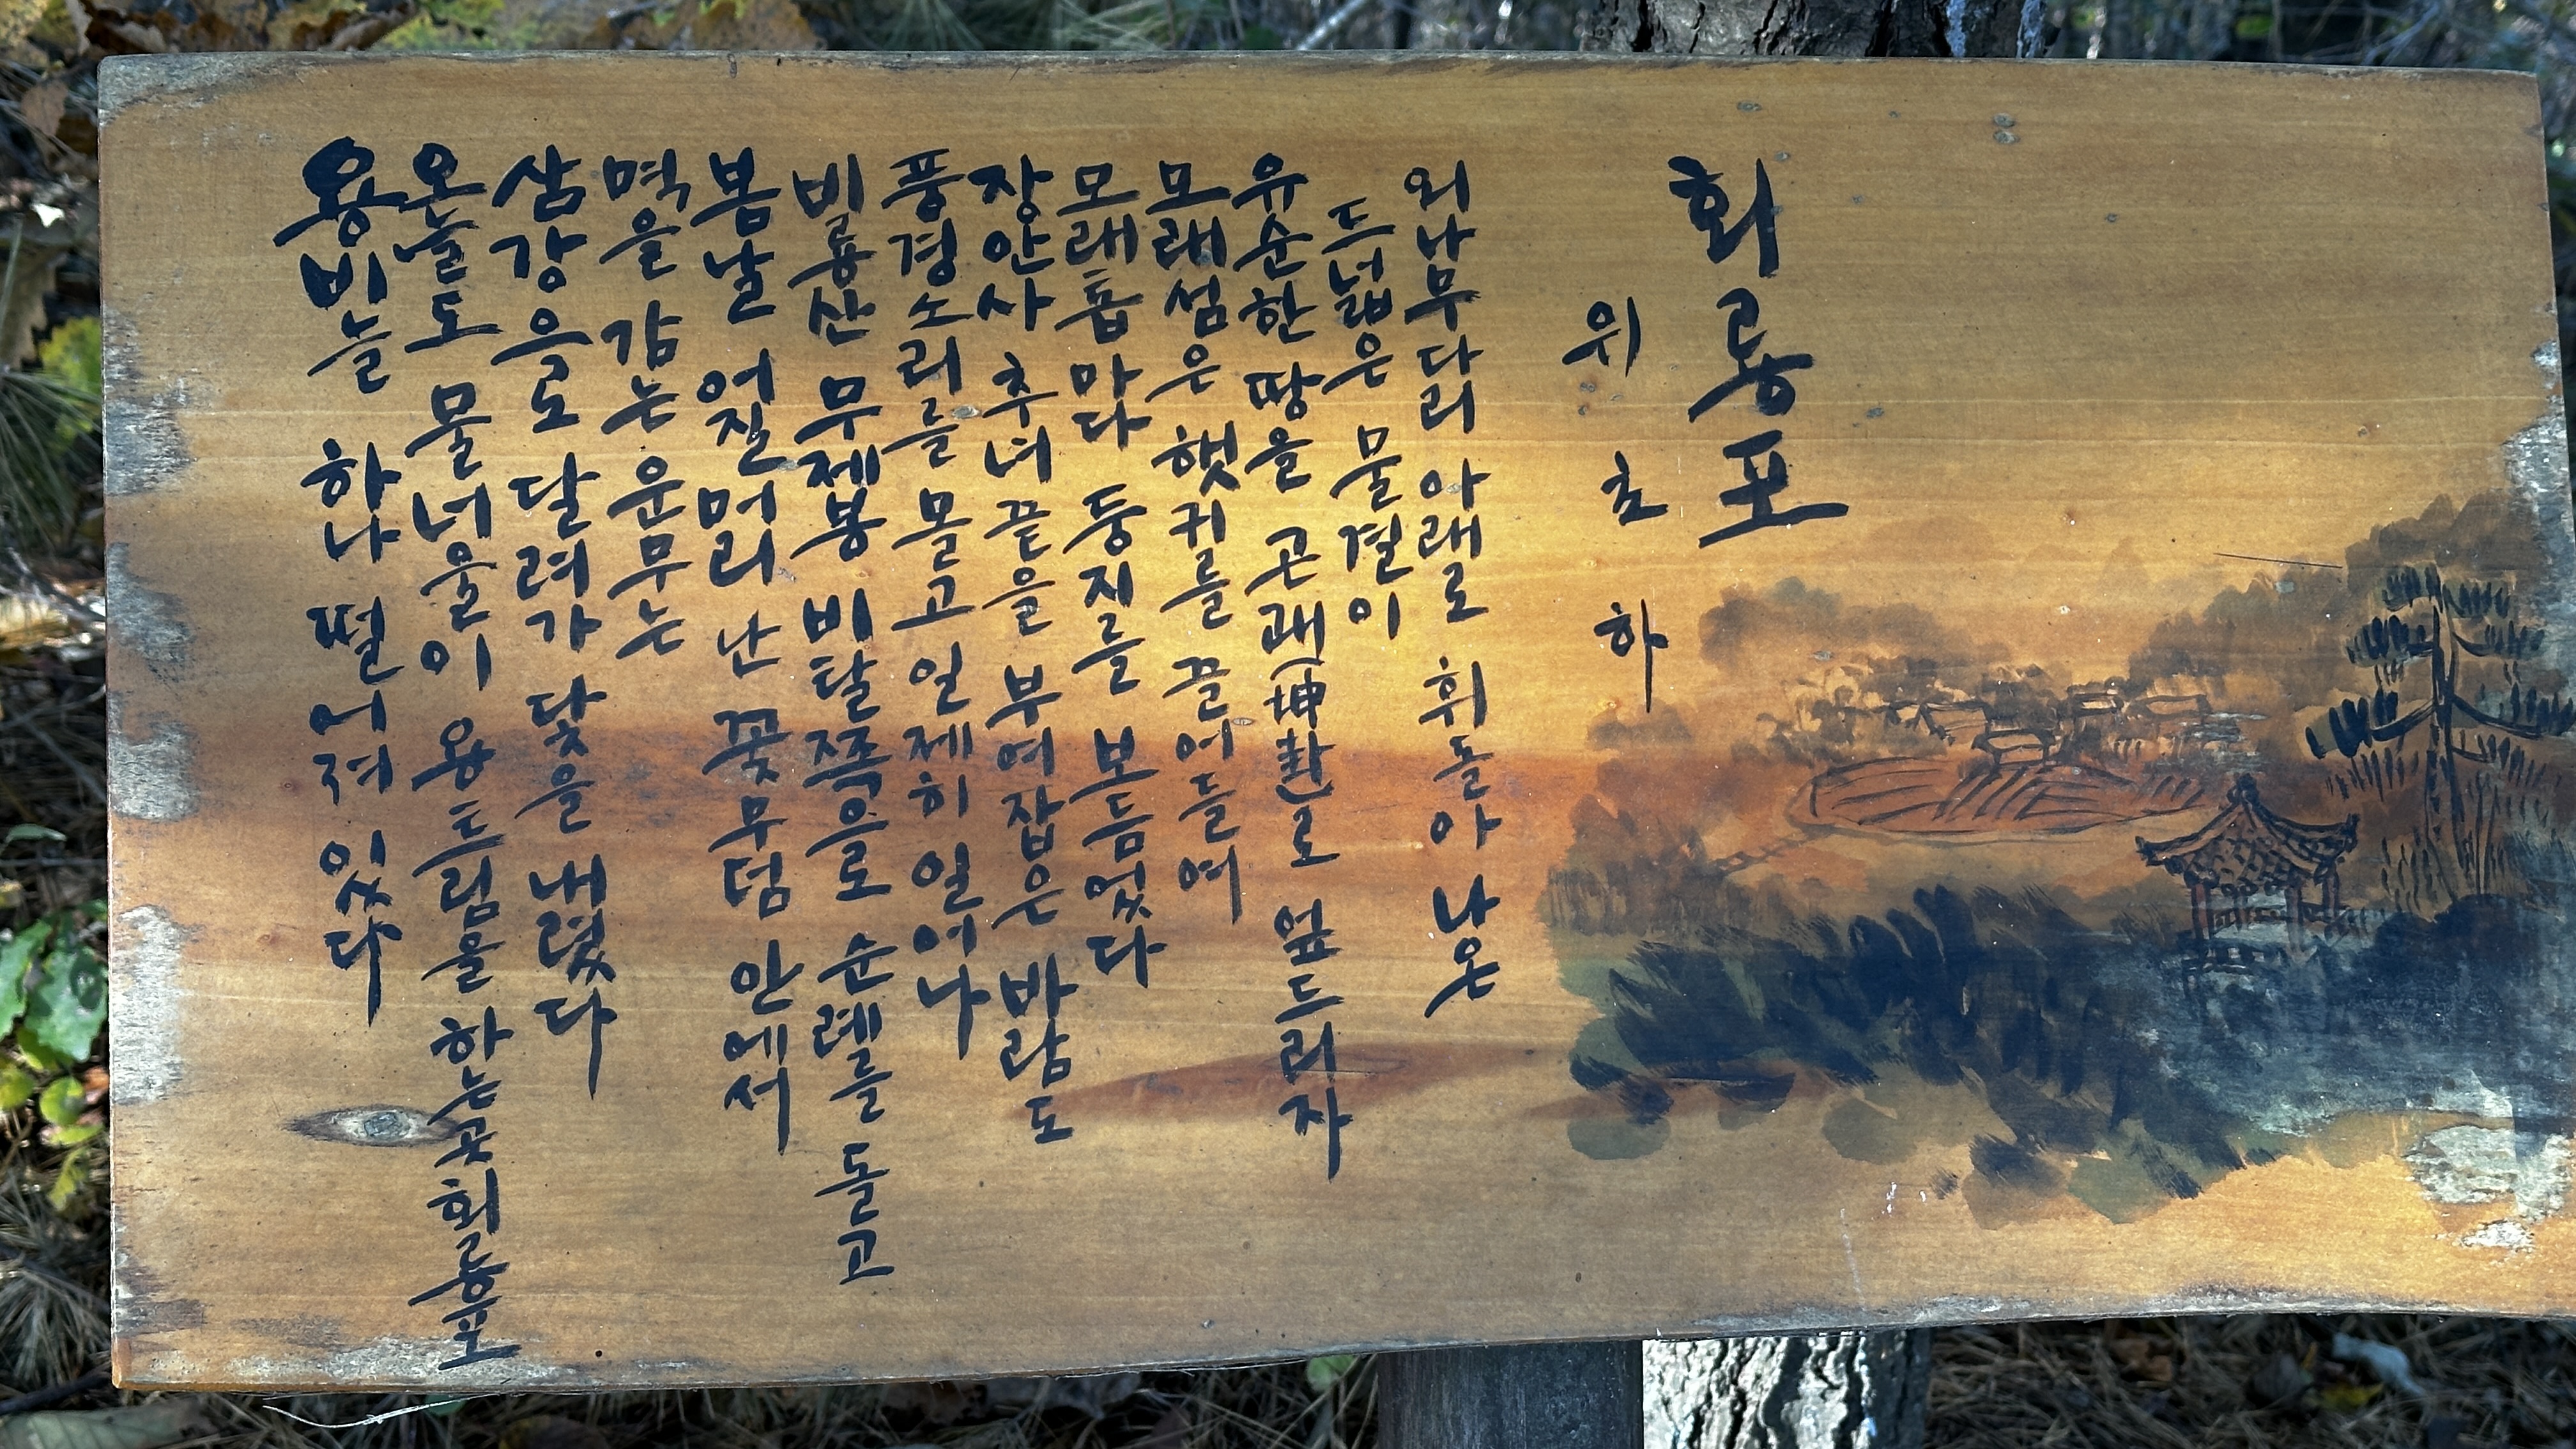 회룡포
위초하
외나무다리 아래로 휘돌아 나온
드넓은 물결이
유순한 땅을 곤괘(坤卦)로 엎드리자
모래섬은 햇귀를 끌어들여
모래톱마다 둥지를 보듬었다
장안사 추녀 끝을 부여잡은 바람도
풍경소리를 몰고 일제히 일어나
비룡산 무제봉 비탈쪽으로 순례를 돌고
봄날 어질머리 난 꽃무덤 안에서
멱을 감는 운무는
삼강으로 달려가 닻을 내렸다
오늘도 물너울이 용트림을 하는 곳 회룡포
용비늘 하나 떨어져 있다